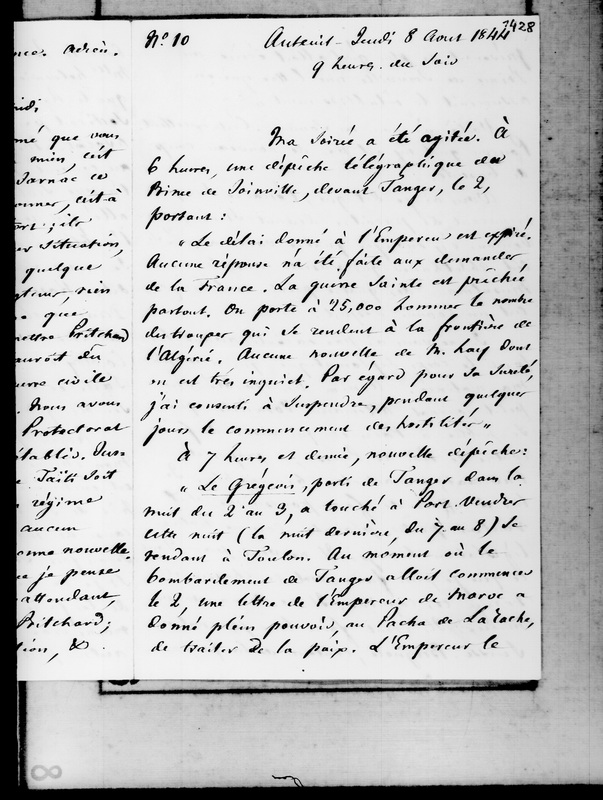 nce. adieu.
idi
mé que vous
mien, c'est
Jarnac ce
onner, c'est-à
ort; ils
er situation,
quelque
gteur, rien
que
mettre Pritchard
auroit du
uerre civile
. Nous avons
Protectorat
établie. Jus-
Taïti soit
régime
aucun
onne nouvelle.
ue je pense
attendant,
Pritchard;
tion, &.
7428
N° 10 Auteuil - Jeudi 8 Aout 1844
9 heures du soir
Ma soirée a été agitée. À
6 heures, une dépêche télégraphique du
Prince de Joinville, devant Tanger, le 2,
portant :
" Le délai donné à l'Empereur est expiré.
Aucune réponse n'a été faite aux demandes
de la France. La guerre sainte est prêchée
partout. On porte à 25,000 hommes le nombre
des troupes qui se rendent à la frontière de
l'Algérie. Aucune nouvelle de M. hay dont
on est très inquiet. Par égard pour sa sureté,
j'ai consenti à suspendre, pendant quelques
jours le commencement des hostilités "
À 7 heures et demie, nouvelle dépêche :
" Le Grégeois, parti de Tanger dans la
nuit du 2 au 3, a touché à Port-Vendres
cette nuit (la nuit dernière, du 7 au 8) se
rendant à Toulon. Au moment où le
bombardement de Tanger alloit commencer
le 2, une lettre de l'Empereur de Maroc a
donné plein pouvoir au Pacha de Larache,
de traiter de la paix. L'Empereur le
8